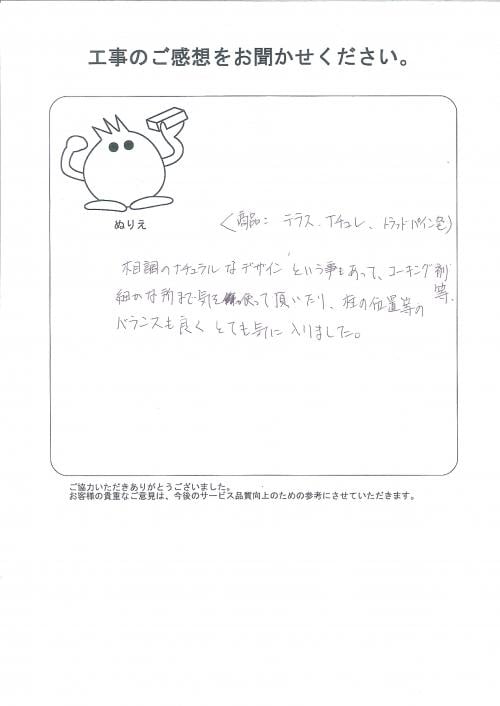 工事のご感想をお聞かせください。
ぬりえ
<商品: テラス.ナチュレ、トラッドパイン色)
木目調のナチュラルなデザインという事もあって、コーキング剤等、
細かな所まで気を使って頂いたり、柱の位置等の
バランスも良くとても気に入りました。
ご協力いただきありがとうございました。
お客様の貴重なご意見は、今後のサービス品質向上のための参考にさせていただきます。